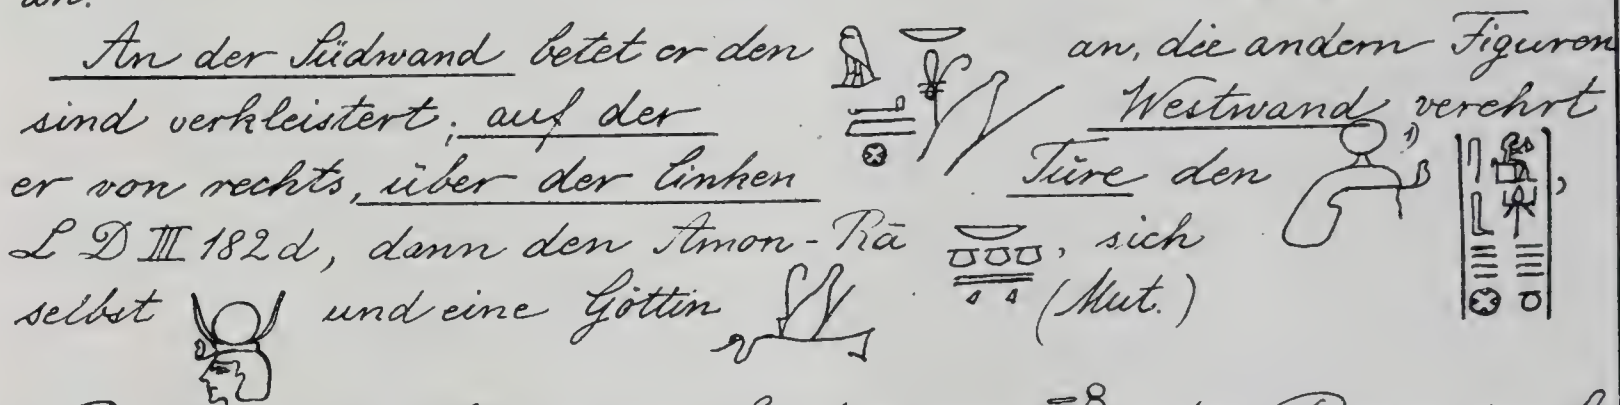 An der Südwand betet er den an, die andern Figuren
sind verkleistert; auf der Westwand verehrt
er von rechts, über der linken Türe den 1) ,
L D III 182d, dann den Amon-Rā , sich
selbst und eine Göttin (Mut.)